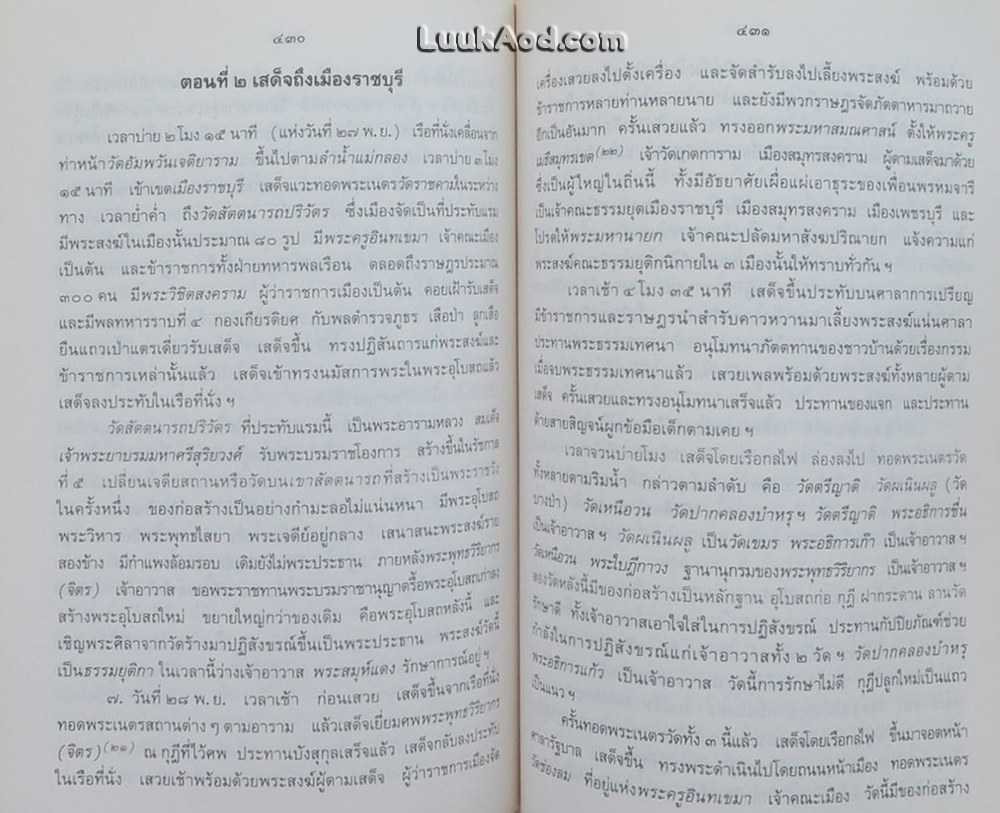 LuukAod.com
๔๓๐
ตอนที่ ๒ เสด็จถึงเมืองราชบุรี
เวลาบ่าย ๒ โมง ๑๕ นาที (แห่งวันที่ ๒๗ พ.ย.) เรือที่นั่งเคลื่อนจาก
ท่าหน้าวัดอัมพวันเจติยาราม ขึ้นไปตามลำน้ำแม่กลอง เวลาบ่าย ๓ โมง
๑๕ นาที เข้าเขตเมืองราชบุรี เสด็จแวะทอดพระเนตรวัดราชคามในระหว่าง
ทาง เวลาย่ำค่ำ ถึงวัดสัตตนารถปริวัตร ซึ่งเมืองจัดเป็นที่ประทับแรม
มีพระสงฆ์ในเมืองนั้นประมาณ ๘๐ รูป มีพระครูอินทเขมา เจ้าคณะเมือง
เป็นต้น และข้าราชการทั้งฝ่ายทหารพลเรือน ตลอดถึงราษฎรประมาณ
๓๐๐ คน มีพระวิชิตสงคราม ผู้ว่าราชการเมืองเป็นต้น คอยเฝ้ารับเสด็จ
และมีพลทหารราบที่ ๔ กองเกียรติยศ กับพลตำรวจภูธร เสือป่า ลูกเสือ
ยืนแถวเป่าแตรเดี่ยวรับเสด็จ เสด็จขึ้น ทรงปฏิสันถารแก่พระสงฆ์และ
ข้าราชการเหล่านั้นแล้ว เสด็จเข้าทรงนมัสการพระในพระอุโบสถแล้ว
เสด็จลงประทับในเรือที่นั่ง ฯ
วัดสัตตนารถปริวัตร ที่ประทับแรมนี้ เป็นพระอารามหลวง สมเด็จ
เจ้าพระยาบรมมหาศรีสุริยวงศ์ รับพระบรมราชโองการ สร้างขึ้นในรัชกาล
ที่ ๕ เปลี่ยนเจดียสถานหรือวัดบนเขาสัตตนารถที่สร้างเป็นพระราชวัง
ในครั้งหนึ่ง ของก่อสร้างเป็นอย่างกำมะลอไม่แน่นหนา มีพระอุโบสถ
พระวิหาร พระพุทธไสยา พระเจดีย์อยู่กลาง เสนาสนะพระสงฆ์ราย
สองข้าง มีกำแพงล้อมรอบ เดิมยังไม่พระประธาน ภายหลังพระพุทธวิริยากร
(จิตร) เจ้าอาวาส ขอพระราชทานพระบรมราชานุญาตรื้อพระอุโบสถเก่าลง
สร้างพระอุโบสถใหม่ ขยายใหญ่กว่าของเดิม คือพระอุโบสถหลังนี้ และ
เชิญพระศิลาจากวัดร้างมาปฏิสังขรณ์ขึ้นเป็นพระประธาน พระสงฆ์วัดนี้
เป็นธรรมยุติกา ในเวลานี้ว่างเจ้าอาวาส พระสมุห์แดง รักษาการณ์อยู่ ฯ
๗. วันที่ ๒๘ พ.ย. เวลาเช้า ก่อนเสวย เสด็จขึ้นจากเรือที่นั่ง
ทอดพระเนตรสถานต่าง ๆ ตามอาราม แล้วเสด็จเยี่ยมศพพระพุทธวิริยากร
(จิตร)(๒๑) ณ กุฎีที่ไว้ศพ ประทานบังสุกุลเสร็จแล้ว เสด็จกลับลงประทับ
ในเรือที่นั่ง เสวยเช้าพร้อมด้วยพระสงฆ์ผู้ตามเสด็จ ผู้ว่าราชการเมืองจัด
๔๓๑
เครื่องเสวยลงไปตั้งเครื่อง และจัดสำรับลงไปเลี้ยงพระสงฆ์ พร้อมด้วย
ข้าราชการหลายท่านหลายนาย และยังมีพวกราษฎรจัดภัตตาหารมาถวาย
อีกเป็นอันมาก ครั้นเสวยแล้ว ทรงออกพระมหาสมณศาสน์ ตั้งให้พระครู
เมธีสมุทรเขต(๒๒) เจ้าวัดเกตการาม เมืองสมุทรสงคราม ผู้ตามเสด็จมาด้วย
ซึ่งเป็นผู้ใหญ่ในถิ่นนี้ ทั้งมีอัธยาศัยเผื่อแผ่เอาธุระของเพื่อนพรหมจารี
เป็นเจ้าคณะธรรมยุตเมืองราชบุรี เมืองสมุทรสงคราม เมืองเพชรบุรี และ
โปรดให้พระมหานายก เจ้าคณะปลัดมหาสังฆปริณายก แจ้งความแก่
พระสงฆ์คณะธรรมยุติกนิกายใน ๓ เมืองนั้นให้ทราบทั่วกัน ฯ
เวลาเช้า ๔ โมง ๓๕ นาที เสด็จขึ้นประทับบนศาลาการเปรียญ
มีข้าราชการและราษฎรนำสำรับคาวหวานมาเลี้ยงพระสงฆ์แน่นศาลา
ประทานพระธรรมเทศนา อนุโมทนาภัตตทานของชาวบ้านด้วยเรื่องกรรม
เมื่อจบพระธรรมเทศนาแล้ว เสวยเพลพร้อมด้วยพระสงฆ์ทั้งหลายผู้ตาม
เสด็จ ครั้นเสวยและทรงอนุโมทนาเสร็จแล้ว ประทานของแจก และประทาน
ด้ายสายสิญจน์ผูกข้อมือเด็กตามเคย ฯ
เวลาจวนบ่ายโมง เสด็จโดยเรือกลไฟ ล่องลงไป ทอดพระเนตรวัด
ทั้งหลายตามริมน้ำ กล่าวตามลำดับ คือ วัดตรีญาติ วัดผเนินผลู (วัด
บางป่า) วัดเหนือวน วัดปากคลองบำหรุ ฯ วัดตรีญาติ พระอธิการชื่น
เป็นเจ้าอาวาส ฯ วัดผเนินผลู เป็นวัดเขมร พระอธิการเก๊า เป็นเจ้าอาวาส ฯ
วัดเหนือวน พระใบฎีกาวง ฐานานุกรมของพระพุทธวิริยากร เป็นเจ้าอาวาส ฯ
สองวัดหลังนี้มีของก่อสร้างเป็นหลักฐาน อุโบสถก่อ กุฎี ฝากระดาน ลานวัด
รักษาดี ทั้งเจ้าอาวาสเอาใจใส่ในการปฏิสังขรณ์ ประทานกัปปิยภัณฑ์ช่วย
กำลังในการปฏิสังขรณ์แก่เจ้าอาวาสทั้ง ๒ วัด ฯ วัดปากคลองบำหรุ
พระอธิการแก้ว เป็นเจ้าอาวาส วัดนี้การรักษาไม่ดี กุฎีปลูกใหม่เป็นแถว
เป็นแนว ฯ
ครั้นทอดพระเนตรวัดทั้ง ๓ นี้แล้ว เสด็จโดยเรือกลไฟ ขึ้นมาจอดหน้า
ศาลารัฐบาล เสด็จขึ้น ทรงพระดำเนินไปโดยถนนหน้าเมือง ทอดพระเนตร
วัดช่องลม ที่อยู่แห่งพระครูอินทเขมา เจ้าคณะเมือง วัดนี้มีของก่อสร้าง